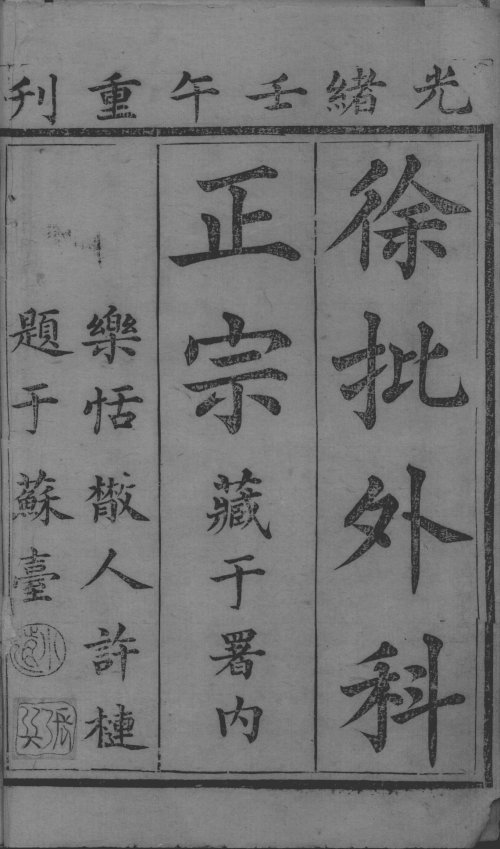 光緒壬午重刊
徐批外科
正宗藏于署内
樂恬散人許楗
題于蘇臺